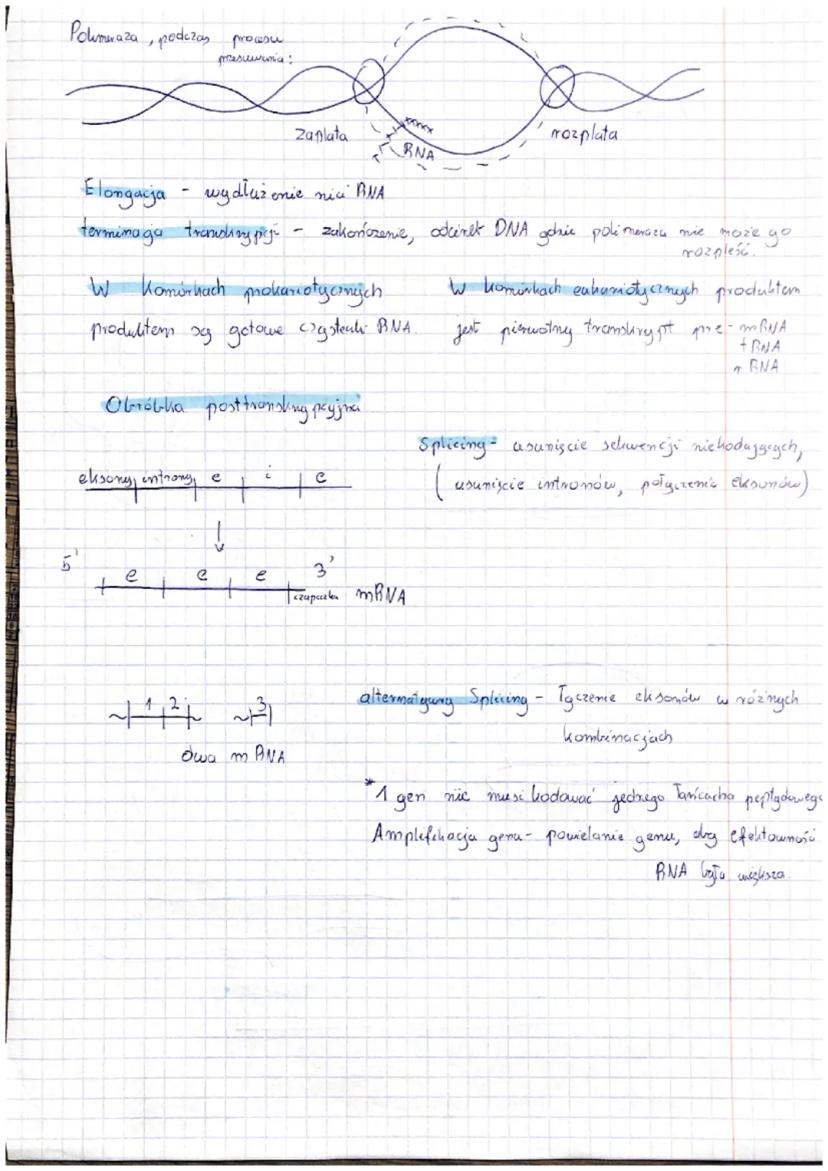 Polimeraza, podczas procesu
przesuwania:
zaplata
RNA
rozplata
Elongacja - wydłużenie nici RNA
terminacja transkrypcji - zakończenie, odcinek DNA gdzie polimeraza nie może go
rozpleść.
W komórkach prokariotycznych
produktem są gotowe cząsteczki RNA.
W komórkach eukariotycznych produktem
jest pierwotny transkrypt pre-mRNA
tRNA
rRNA
Obróbka posttranskrypcyjna
Splicing - usunięcie sekwencji niekodujących,
(usunięcie intronów, połączenie eksonów)
eksony introny e i e
5' e e e 3'
czapeczka mRNA
1 2 3
dwa mRNA
alternatywny Splicing - łączenie eksonów w różnych
kombinacjach
*1 gen nie musi kodować jednego łańcucha peptydowego
Amplifikacja genu - powielanie genu, aby efektowność
RNA była większa.